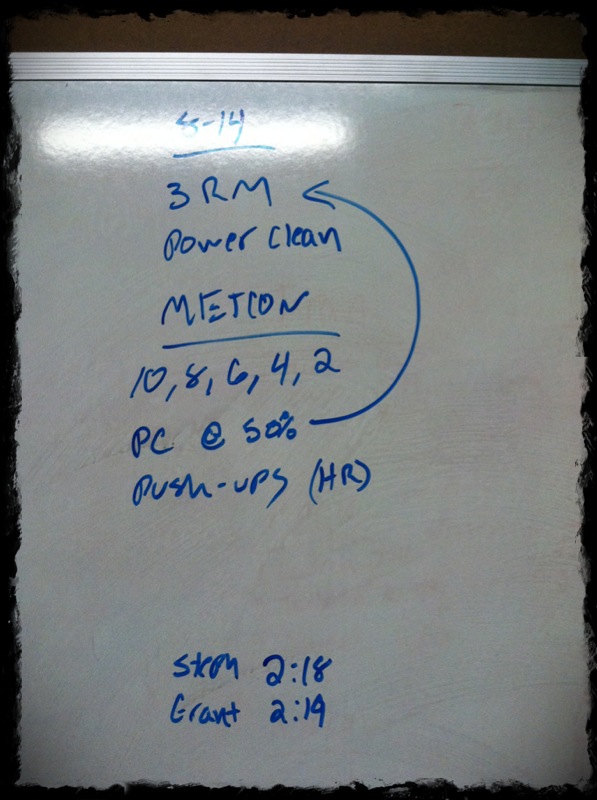 8-14
3 RM
Power Clean
METCON
10, 8, 6, 4, 2
PC @ 50%
Push-ups (HR)
Steph 2:18
Grant 2:19